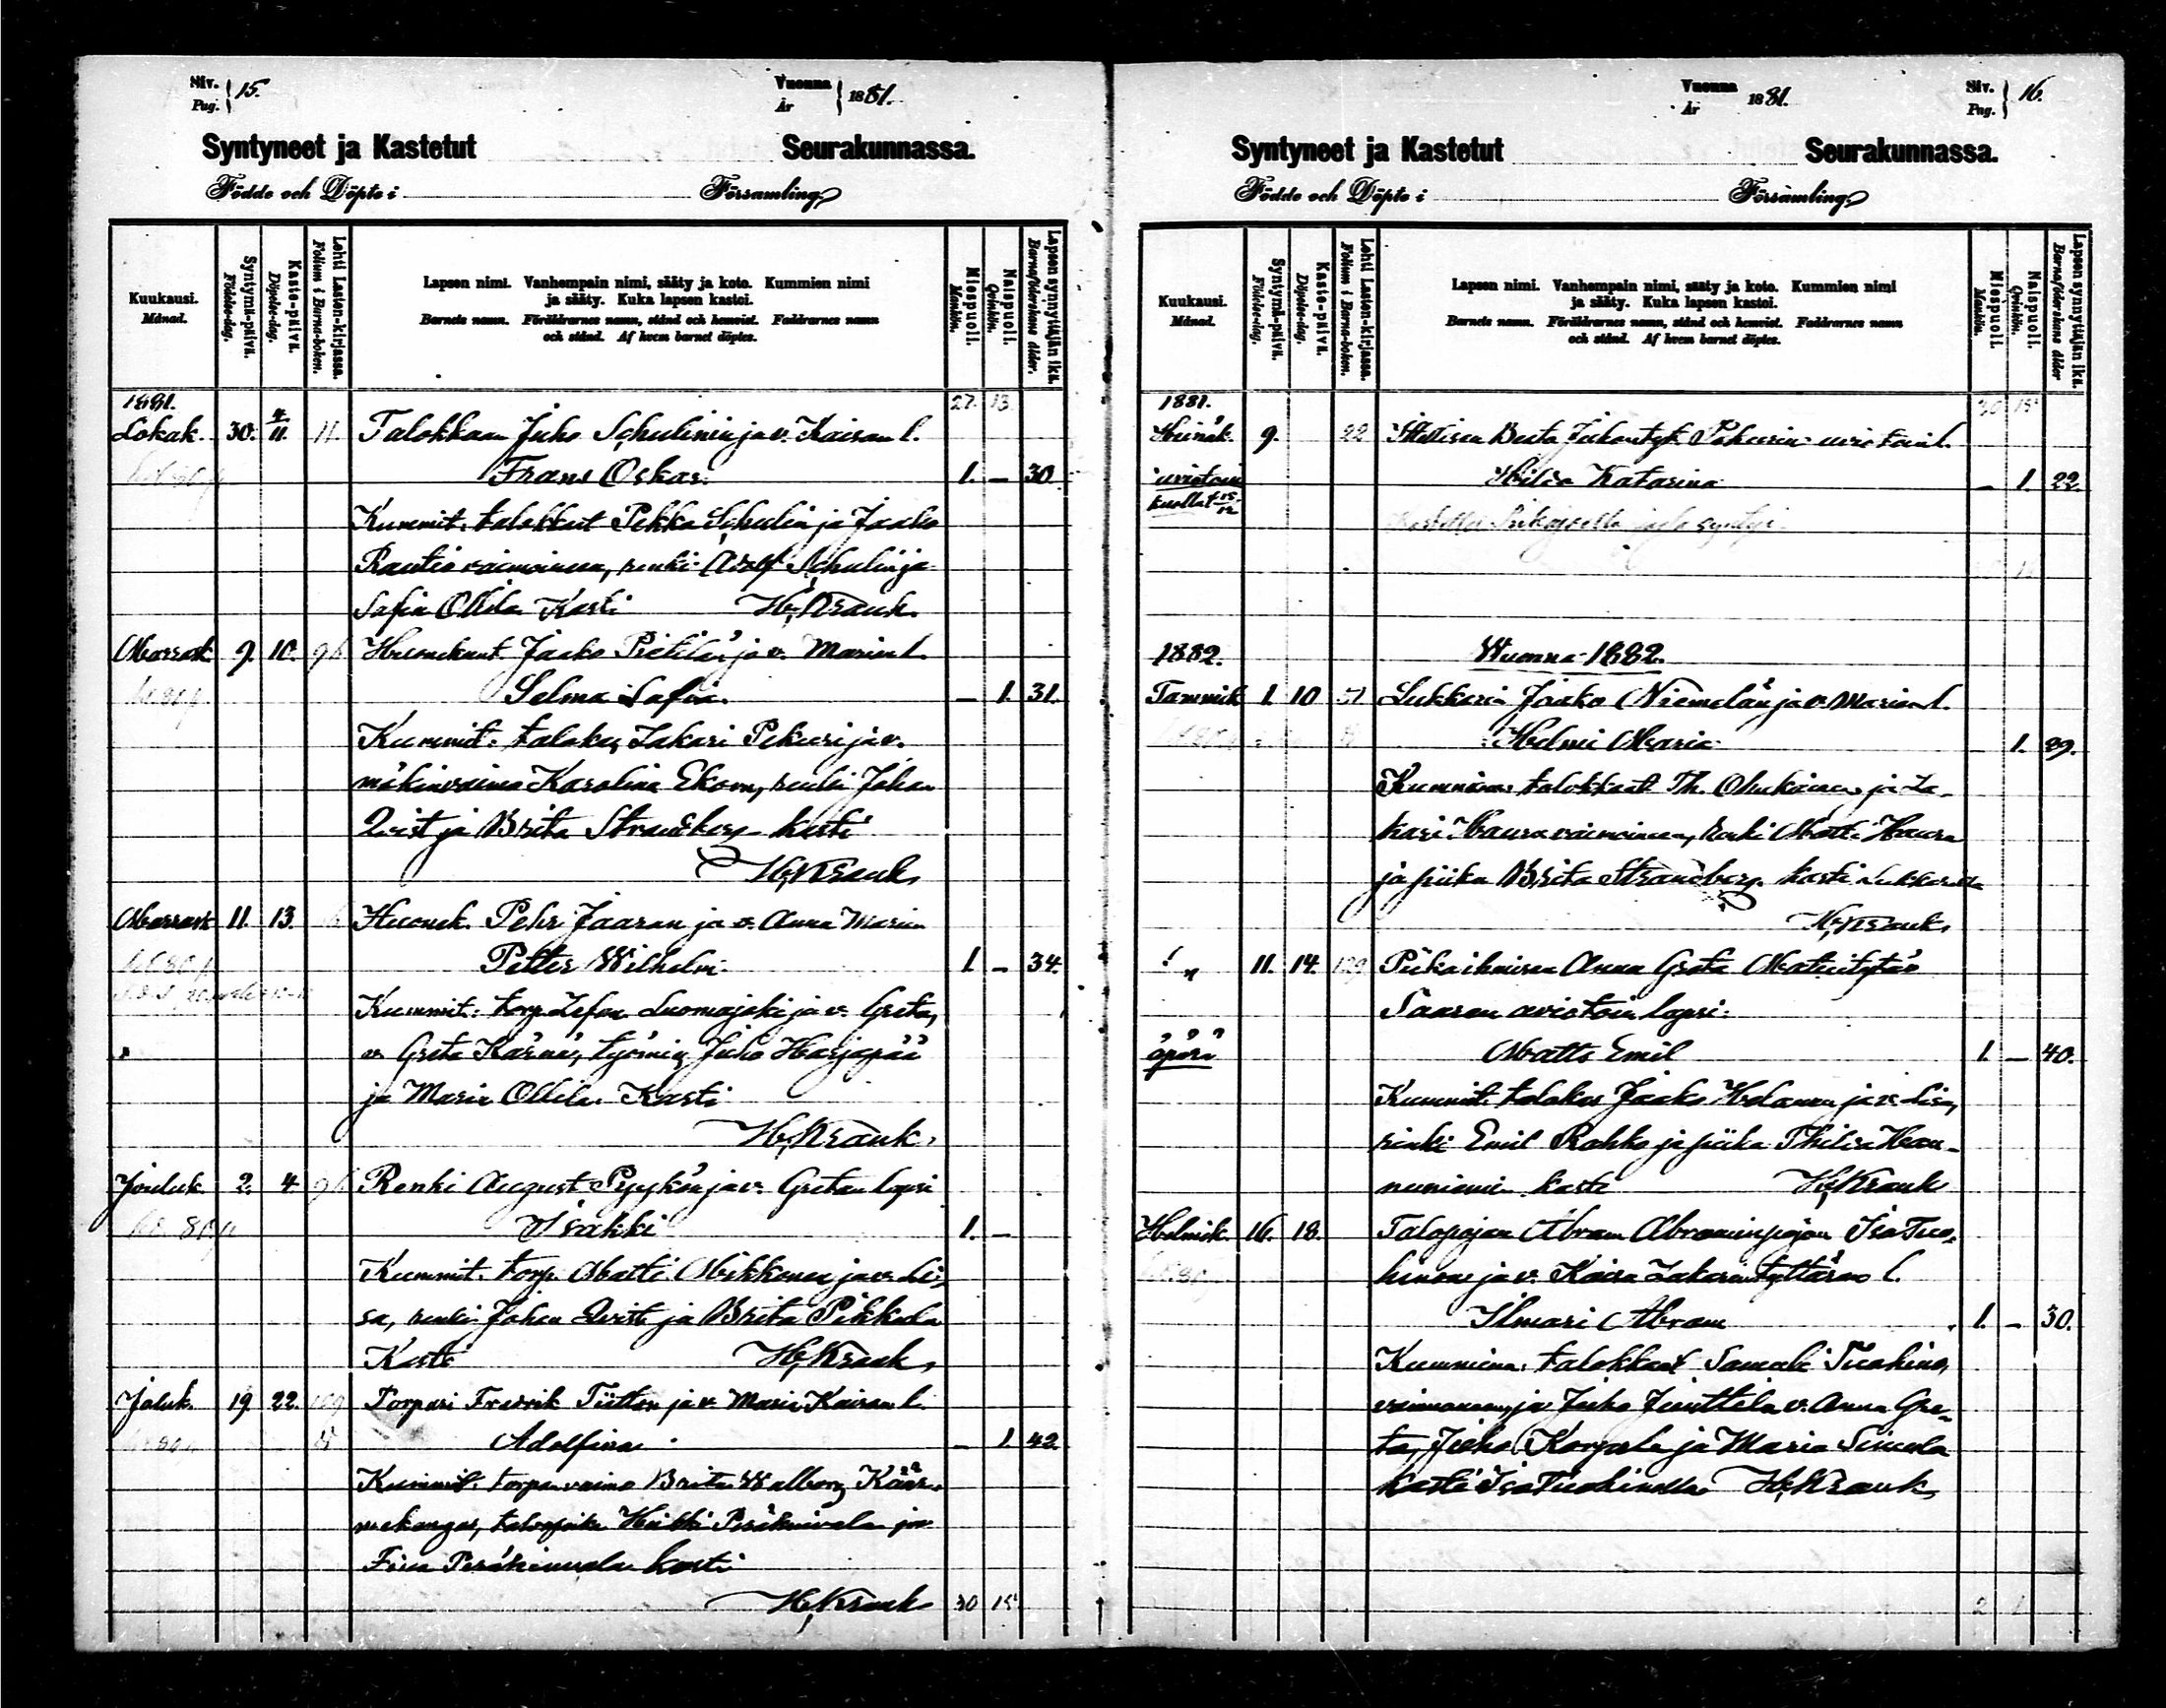 Siv. Pag. } 15.
Vuonna År } 1881.
Syntyneet ja Kastetut Seurakunnassa.
Födde och Döpte i Församling
Kuukausi. Månad.
Syntymä-päivä. Födelse-dag.
Kaste-päivä. Döpelse-dag.
Lehti Lasten-kirjassa. Folium i Barna-boken.
Lapsen nimi. Vanhempain nimi, sääty ja koto. Kummien nimi
ja sääty. Kuka lapsen kastoi.
Barnets namn. Föräldrarnes namn, stånd och hemvist. Faddrarnes namn
och stånd. Af hvem barnet döptes.
Miespuoli. Mankön.
Naispuoli. Qvinkön.
Lapsen synnyttäjän ikä. Barnaföderskans ålder.
1881. 27. 13.
Lokak. 30. 4/11. 11. Talokkaan Juho Schulinin ja v. Kaisan l.
Frans Oskar. 1. — 30.
Kummit: talokkaat Pekka Schulin ja Jaako
Rautio vaimoineen, renki Adolf Schulin ja
Safia Ollila Kasti H. Krank.
Marrask. 9. 10. Huonekunt. Jaako Pietilän ja v. Marian l.
Selma Safia. — 1. 31.
Kummit: talokas Zakari Pekuri ja v.
mäkinvaimo Karolina Ekom, renki Johan
Qvist ja Brita Strandberg kasti
H. Krank
Marrask. 11. 13. Huonek. Pehr Jaaran ja v. Anna Maria
Petter Wilhelm. 1. — 34.
Kummit: torp. Zefan Luomajoki ja v. Greta,
v. Greta Kärnä, työmies Juho Harjapää
ja Maria Ollila. Kasti
H. Krank.
Jouluk. 2. 4. Renki August Pyykön ja v. Gretan lapsi
Isakki 1. —
Kummit: torp. Matti Mikkonen ja v. Li-
sa, renki Johan Qvist ja Brita Pikkula
Kasti H. Krank,
Jouluk. 19. 22. Torpari Fredrik Tiitton ja v. Maria Kaisan l.
Adolfina — 1. 42.
Kummit: torparivaimo Brita Walborg Käär-
mekangas, Heikki Peräkuivala ja
Fiina kasti
H. Krank 30 15
Vuonna År } 1881.
Siv. Pag. } 16.
Syntyneet ja Kastetut Seurakunnassa.
Födde och Döpte i Församling
Kuukausi. Månad.
Syntymä-päivä. Födelse-dag.
Kaste-päivä. Döpelse-dag.
Lehti Lasten-kirjassa. Folium i Barna-boken.
Lapsen nimi. Vanhempain nimi, sääty ja koto. Kummien nimi
ja sääty. Kuka lapsen kastoi.
Barnets namn. Föräldrarnes namn, stånd och hemvist. Faddrarnes namn
och stånd. Af hvem barnet döptes.
Miespuoli. Mankön.
Naispuoli. Qvinkön.
Lapsen synnyttäjän ikä. Barnaföderskans ålder
1881. 30 15
Heinäk. 9. 22 Itsellisen Beata Juhontyt. Pekurin aviotoin l.
aviotoin Hilda Katarina — 1. 22.
kuollut
1882. Wuonna 1882.
Tammik. 1. 10. Lukkari Jaako Niemelän ja v. Marian l.
Helmi Maria — 1. 39.
Kummina talokkaat Th. Ohukainen ja Za-
kari Haura vaimoineen, renki Matti Haura
ja piika Brita Strandberg. kasti
H. Krank,
" 11. 14. 129 Piikaihmisen Anna Greta Matintytär
Saaran aviotoin lapsi:
äpärä Matts Emil 1. — 40.
Kummit: talokas Jaako Helanen ja v. Lisa,
renki Emil Rahko ja piika Thilda Han-
nuniemi kasti H. Krank
Helmik. 16. 18. Talopojan Abram Abraminpojan Iso Tuo-
hinon ja v. Kaisa Zakarintyttären l.
Ilmari Abram 1. — 30.
Kummina: talokkaat Samuli Tuohino,
vaimoneen, ja Juho Junttila v. Anna Gre-
ta, Juho Korpela ja Maria Simula
kasti Iso Tuohinolla H. Krank,
2 1